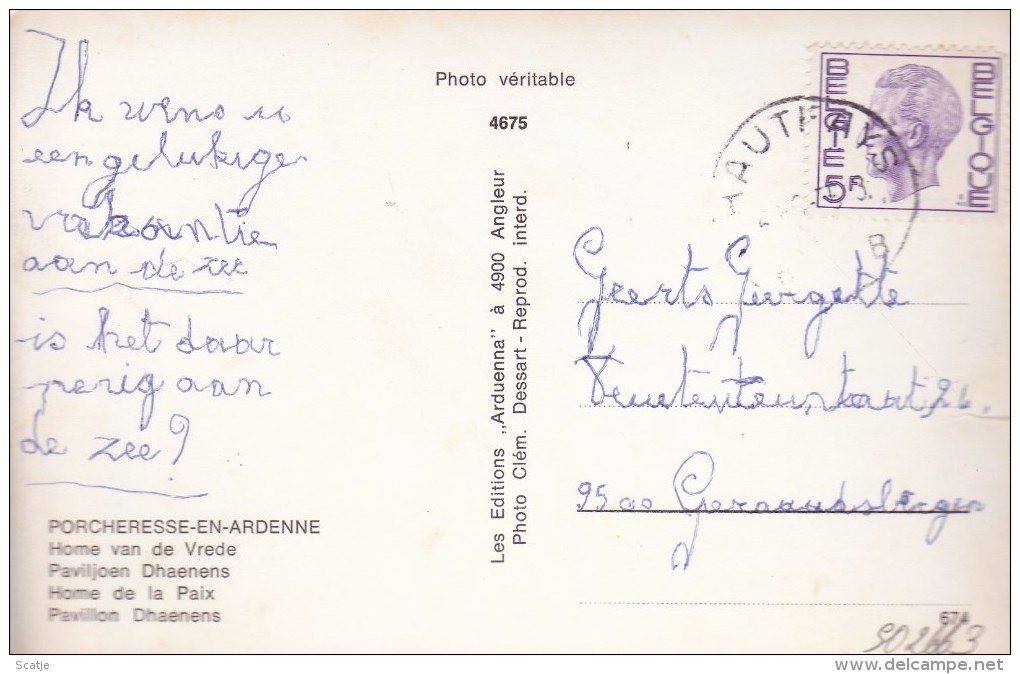 Ik wens u
een gelukige
vakantie
aan de zee
is het daar
perig aan
de zee?
PORCHERESSE-EN-ARDENNE
Home van de Vrede
Paviljoen Dhaenens
Home de la Paix
Pavillon Dhaenens
Photo véritable
4675
Les Editions „Arduenna" à 4900 Angleur
Photo Clém. Dessart - Reprod. interd.
BELGIE 5F
BELGIQUE
HAUTFAYS
Geerts Georgette
26.
9500 Geraardsbergen
674
902663
Scatje
www.delcampe.net